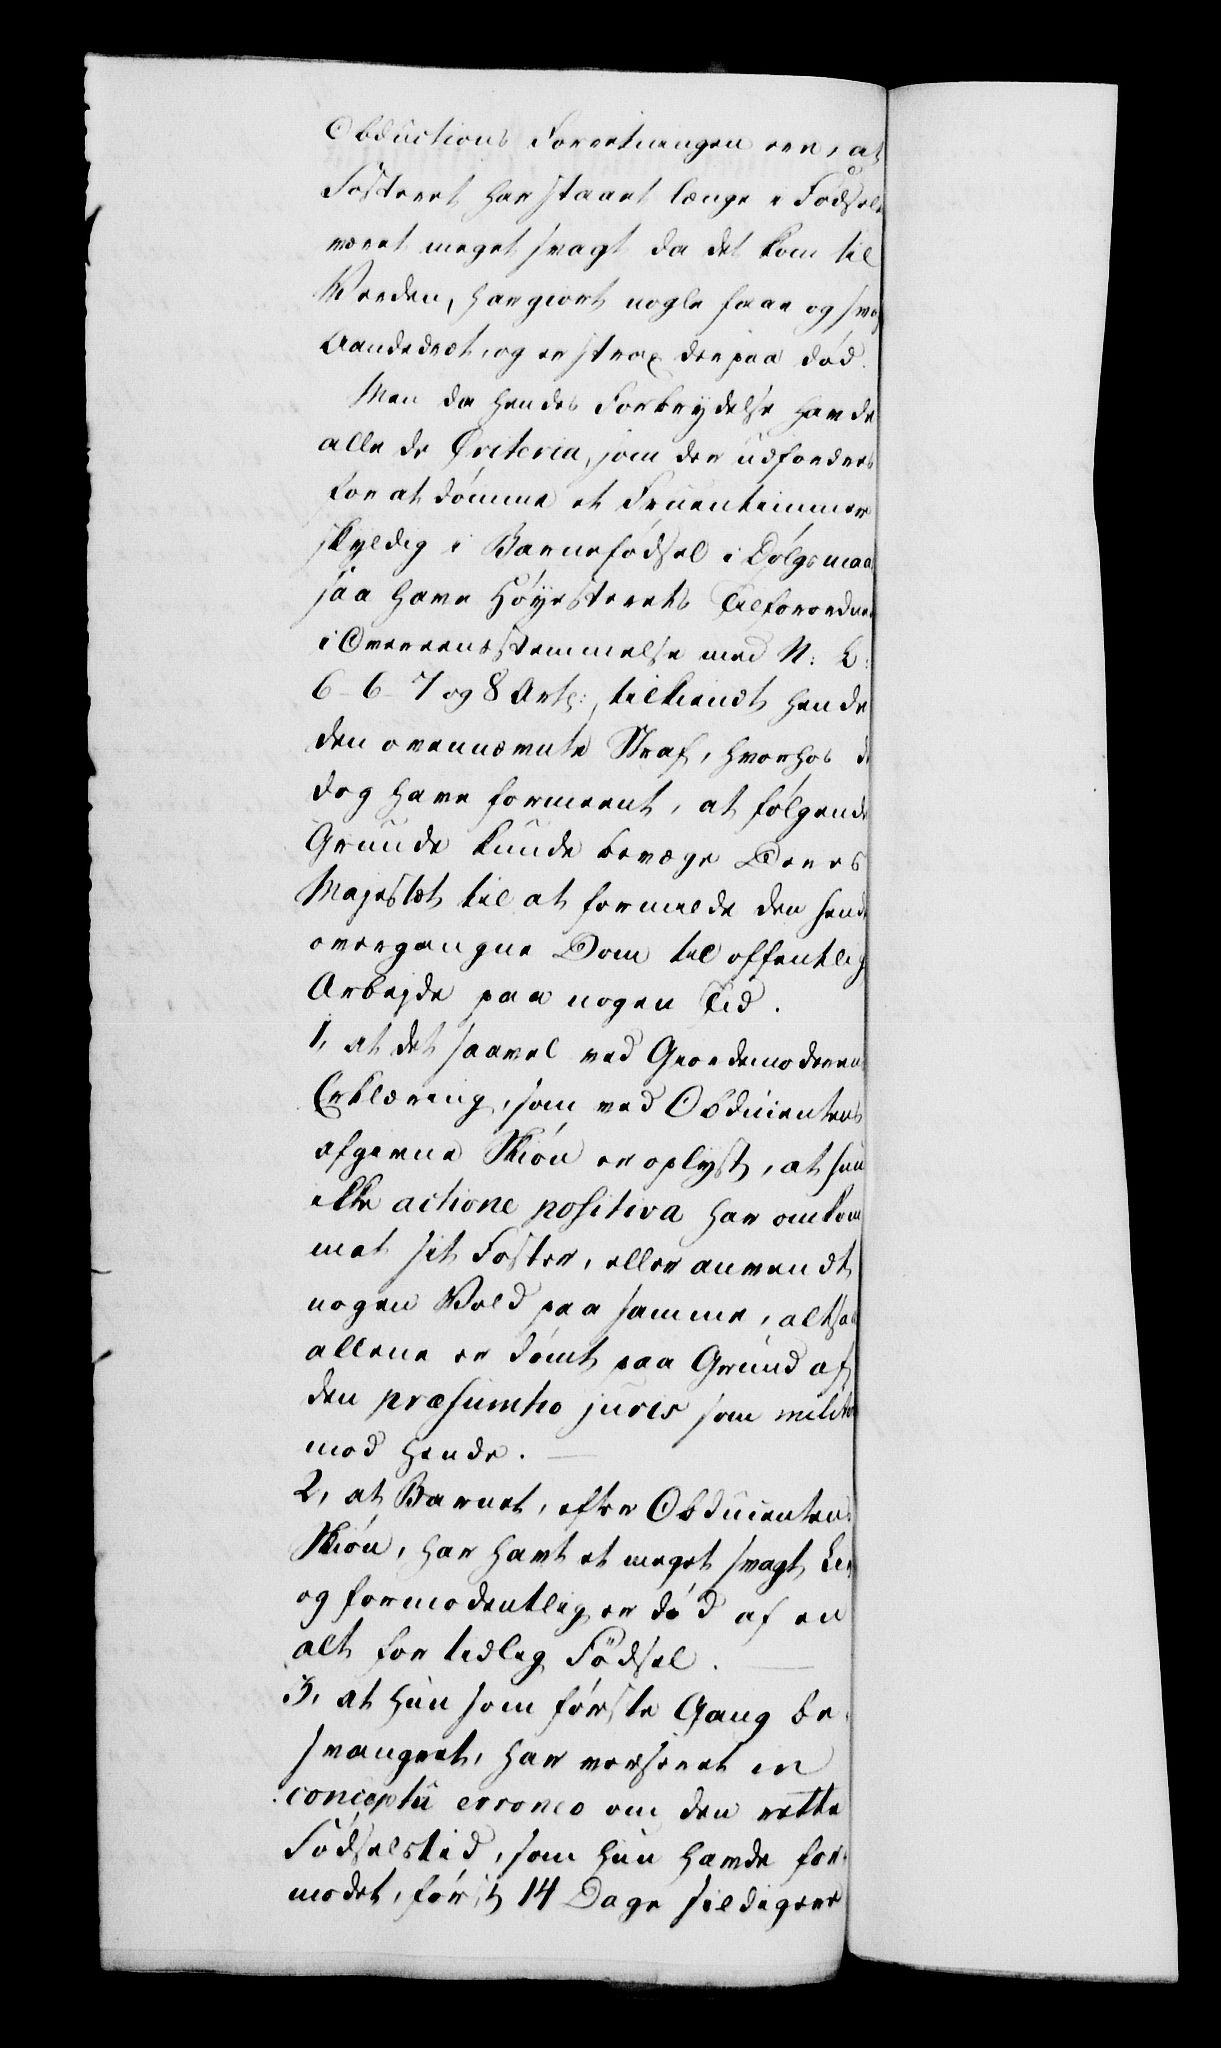 Obductions Forretningen eer, at
Fosteret har staaet længe i Fødsele
været meget svagt da det kom til
Verden, har giort nogle faae og svag
Aandedræt, og er strax derpaa død.
Men da hendes Forbrydelse havde
alle de Criteria, som der udfordres
for at dømme et Fruentimmer
skyldig i Barnefødsel i Dølgsmaal
saa have Høyesterets Tilforordnede
i Overeensstemmelse med N: L:
6-6-7 og 8 Artl: tilkiendt hende
den ovennævnte Straf, hvorhos de
dog have formeent, at følgende
Grunde kunde bevæge Deres
Majestæt til at formilde den hende
overgangne Dom til offentlig
Arbejde paa nogen Tid.
1, at det saavel ved Giordemoderens
Erklæring, som ved Obducentens
afgevne Skiøn er oplyst, at hun
ikke actione positiva har omkom
met sit Foster, eller anvendt
nogen Vold paa samme, altsaa
allene er dømt paa Grund af
den præsumtio juris som militer
mod hende.
2, at Barnet, efter Obducentens
Skiøn, har havt et meget svagt Liv
og formodentlig er død af en
alt for tidlig Fødsel.
3, at hun som første Gang be-
svangret, har verseret in
conceptu erroneo om den rette
Fødselstid, som hun havde for-
modet, først 14 Dage sildigere